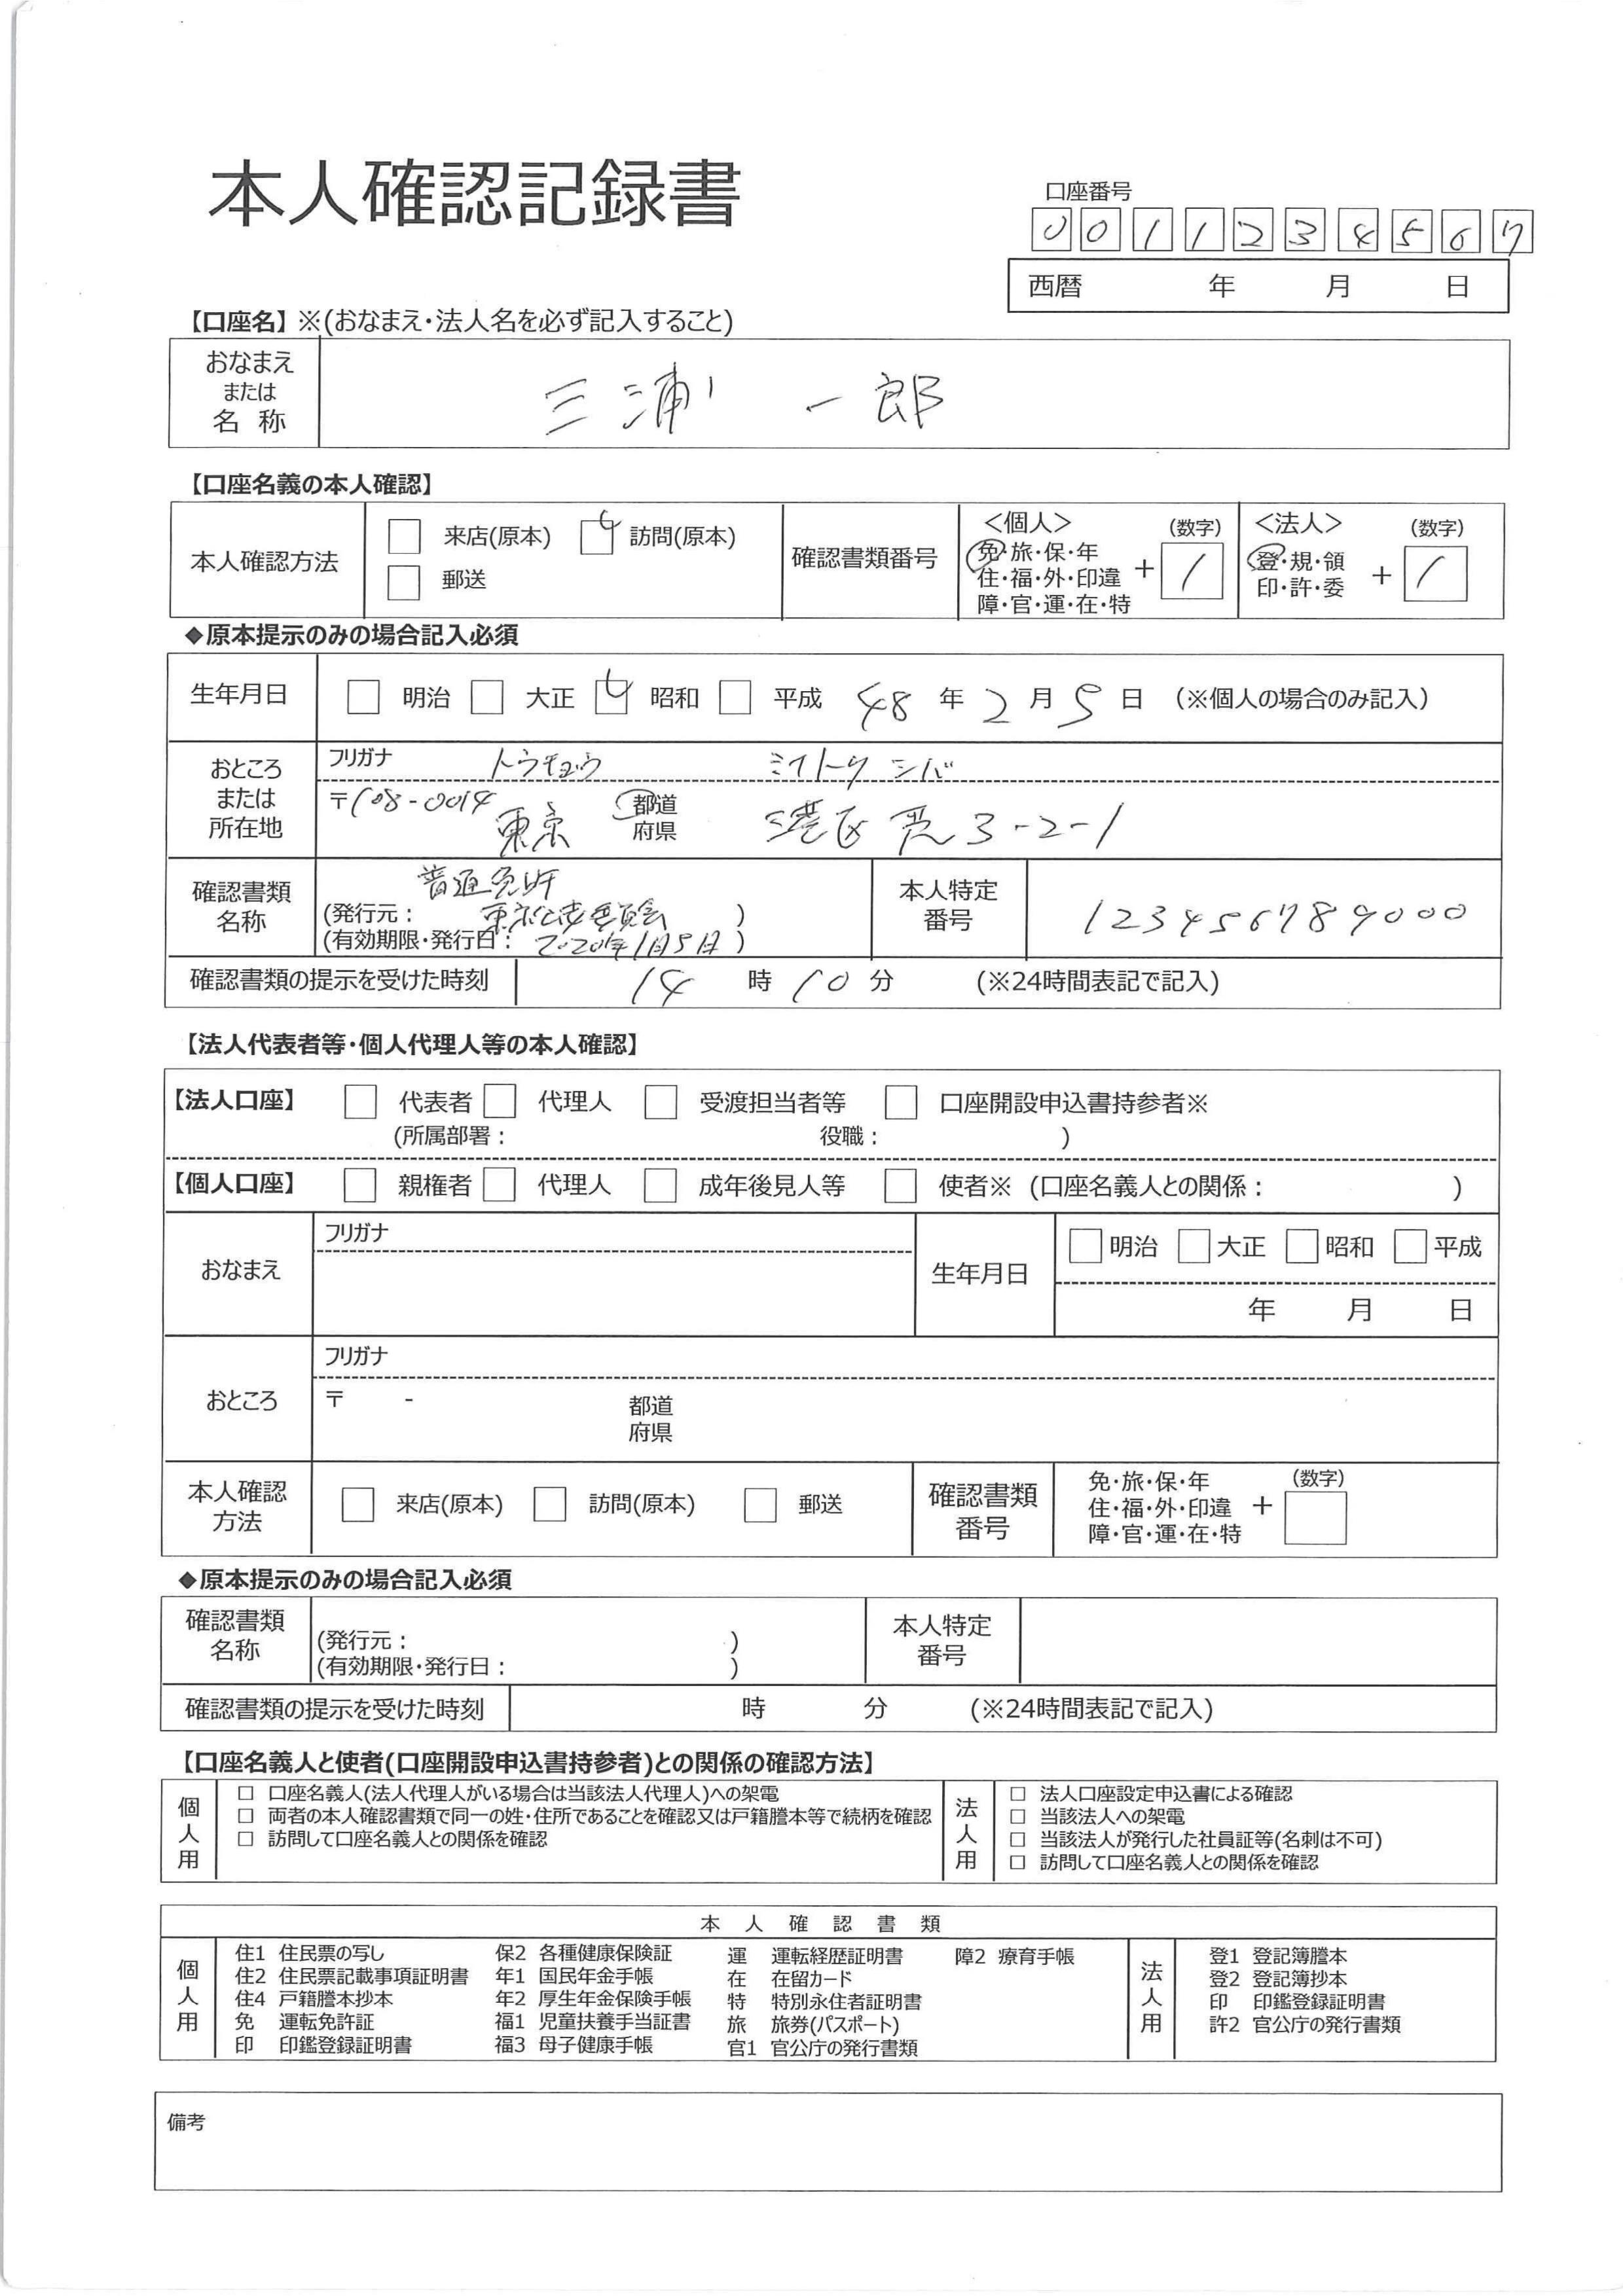 本人確認記録書
口座番号
0 0 1 1 2 3 4 5 6 7
西暦 年 月 日
【口座名】※(おなまえ・法人名を必ず記入すること)
おなまえ
または
名 称
三浦 一郎
【口座名義の本人確認】
本人確認方法
来店(原本) 訪問(原本)
郵送
確認書類番号
<個人> (数字)
免・旅・保・年
住・福・外・印違 + 1
障・官・運・在・特
<法人> (数字)
登・規・領
印・許・委 + 1
◆原本提示のみの場合記入必須
生年月日 明治 大正 昭和 平成 48 年 2 月 5 日 (※個人の場合のみ記入)
おところ
または
所在地
フリガナ トウキョウ ミナトク シバ
〒108-0014 東京 都道 府県 港区芝3-2-1
確認書類
名称
普通免許
(発行元: 東京公安委員会 )
(有効期限・発行日: 2020年1月5日 )
本人特定
番号
123456789000
確認書類の提示を受けた時刻 14 時 10 分 (※24時間表記で記入)
【法人代表者等・個人代理人等の本人確認】
【法人口座】 代表者 代理人 受渡担当者等 口座開設申込書持参者※
(所属部署: 役職: )
【個人口座】 親権者 代理人 成年後見人等 使者※ (口座名義人との関係: )
おなまえ
フリガナ
生年月日
明治 大正 昭和 平成
年 月 日
おところ
フリガナ
〒 - 都道
府県
本人確認
方法
来店(原本) 訪問(原本) 郵送
確認書類
番号
免・旅・保・年 (数字)
住・福・外・印違 +
障・官・運・在・特
◆原本提示のみの場合記入必須
確認書類
名称
(発行元: )
(有効期限・発行日: )
本人特定
番号
確認書類の提示を受けた時刻 時 分 (※24時間表記で記入)
【口座名義人と使者(口座開設申込書持参者)との関係の確認方法】
個人用
□ 口座名義人(法人代理人がいる場合は当該法人代理人)への架電
□ 両者の本人確認書類で同一の姓・住所であることを確認又は戸籍謄本等で続柄を確認
□ 訪問して口座名義人との関係を確認
法人用
□ 法人口座設定申込書による確認
□ 当該法人への架電
□ 当該法人が発行した社員証等(名刺は不可)
□ 訪問して口座名義人との関係を確認
本 人 確 認 書 類
個人用
住1 住民票の写し
住2 住民票記載事項証明書
住4 戸籍謄本抄本
免 運転免許証
印 印鑑登録証明書
保2 各種健康保険証
年1 国民年金手帳
年2 厚生年金保険手帳
福1 児童扶養手当証書
福3 母子健康手帳
運 運転経歴証明書
在 在留カード
特 特別永住者証明書
旅 旅券(パスポート)
官1 官公庁の発行書類
障2 療育手帳
法人用
登1 登記簿謄本
登2 登記簿抄本
印 印鑑登録証明書
許2 官公庁の発行書類
備考